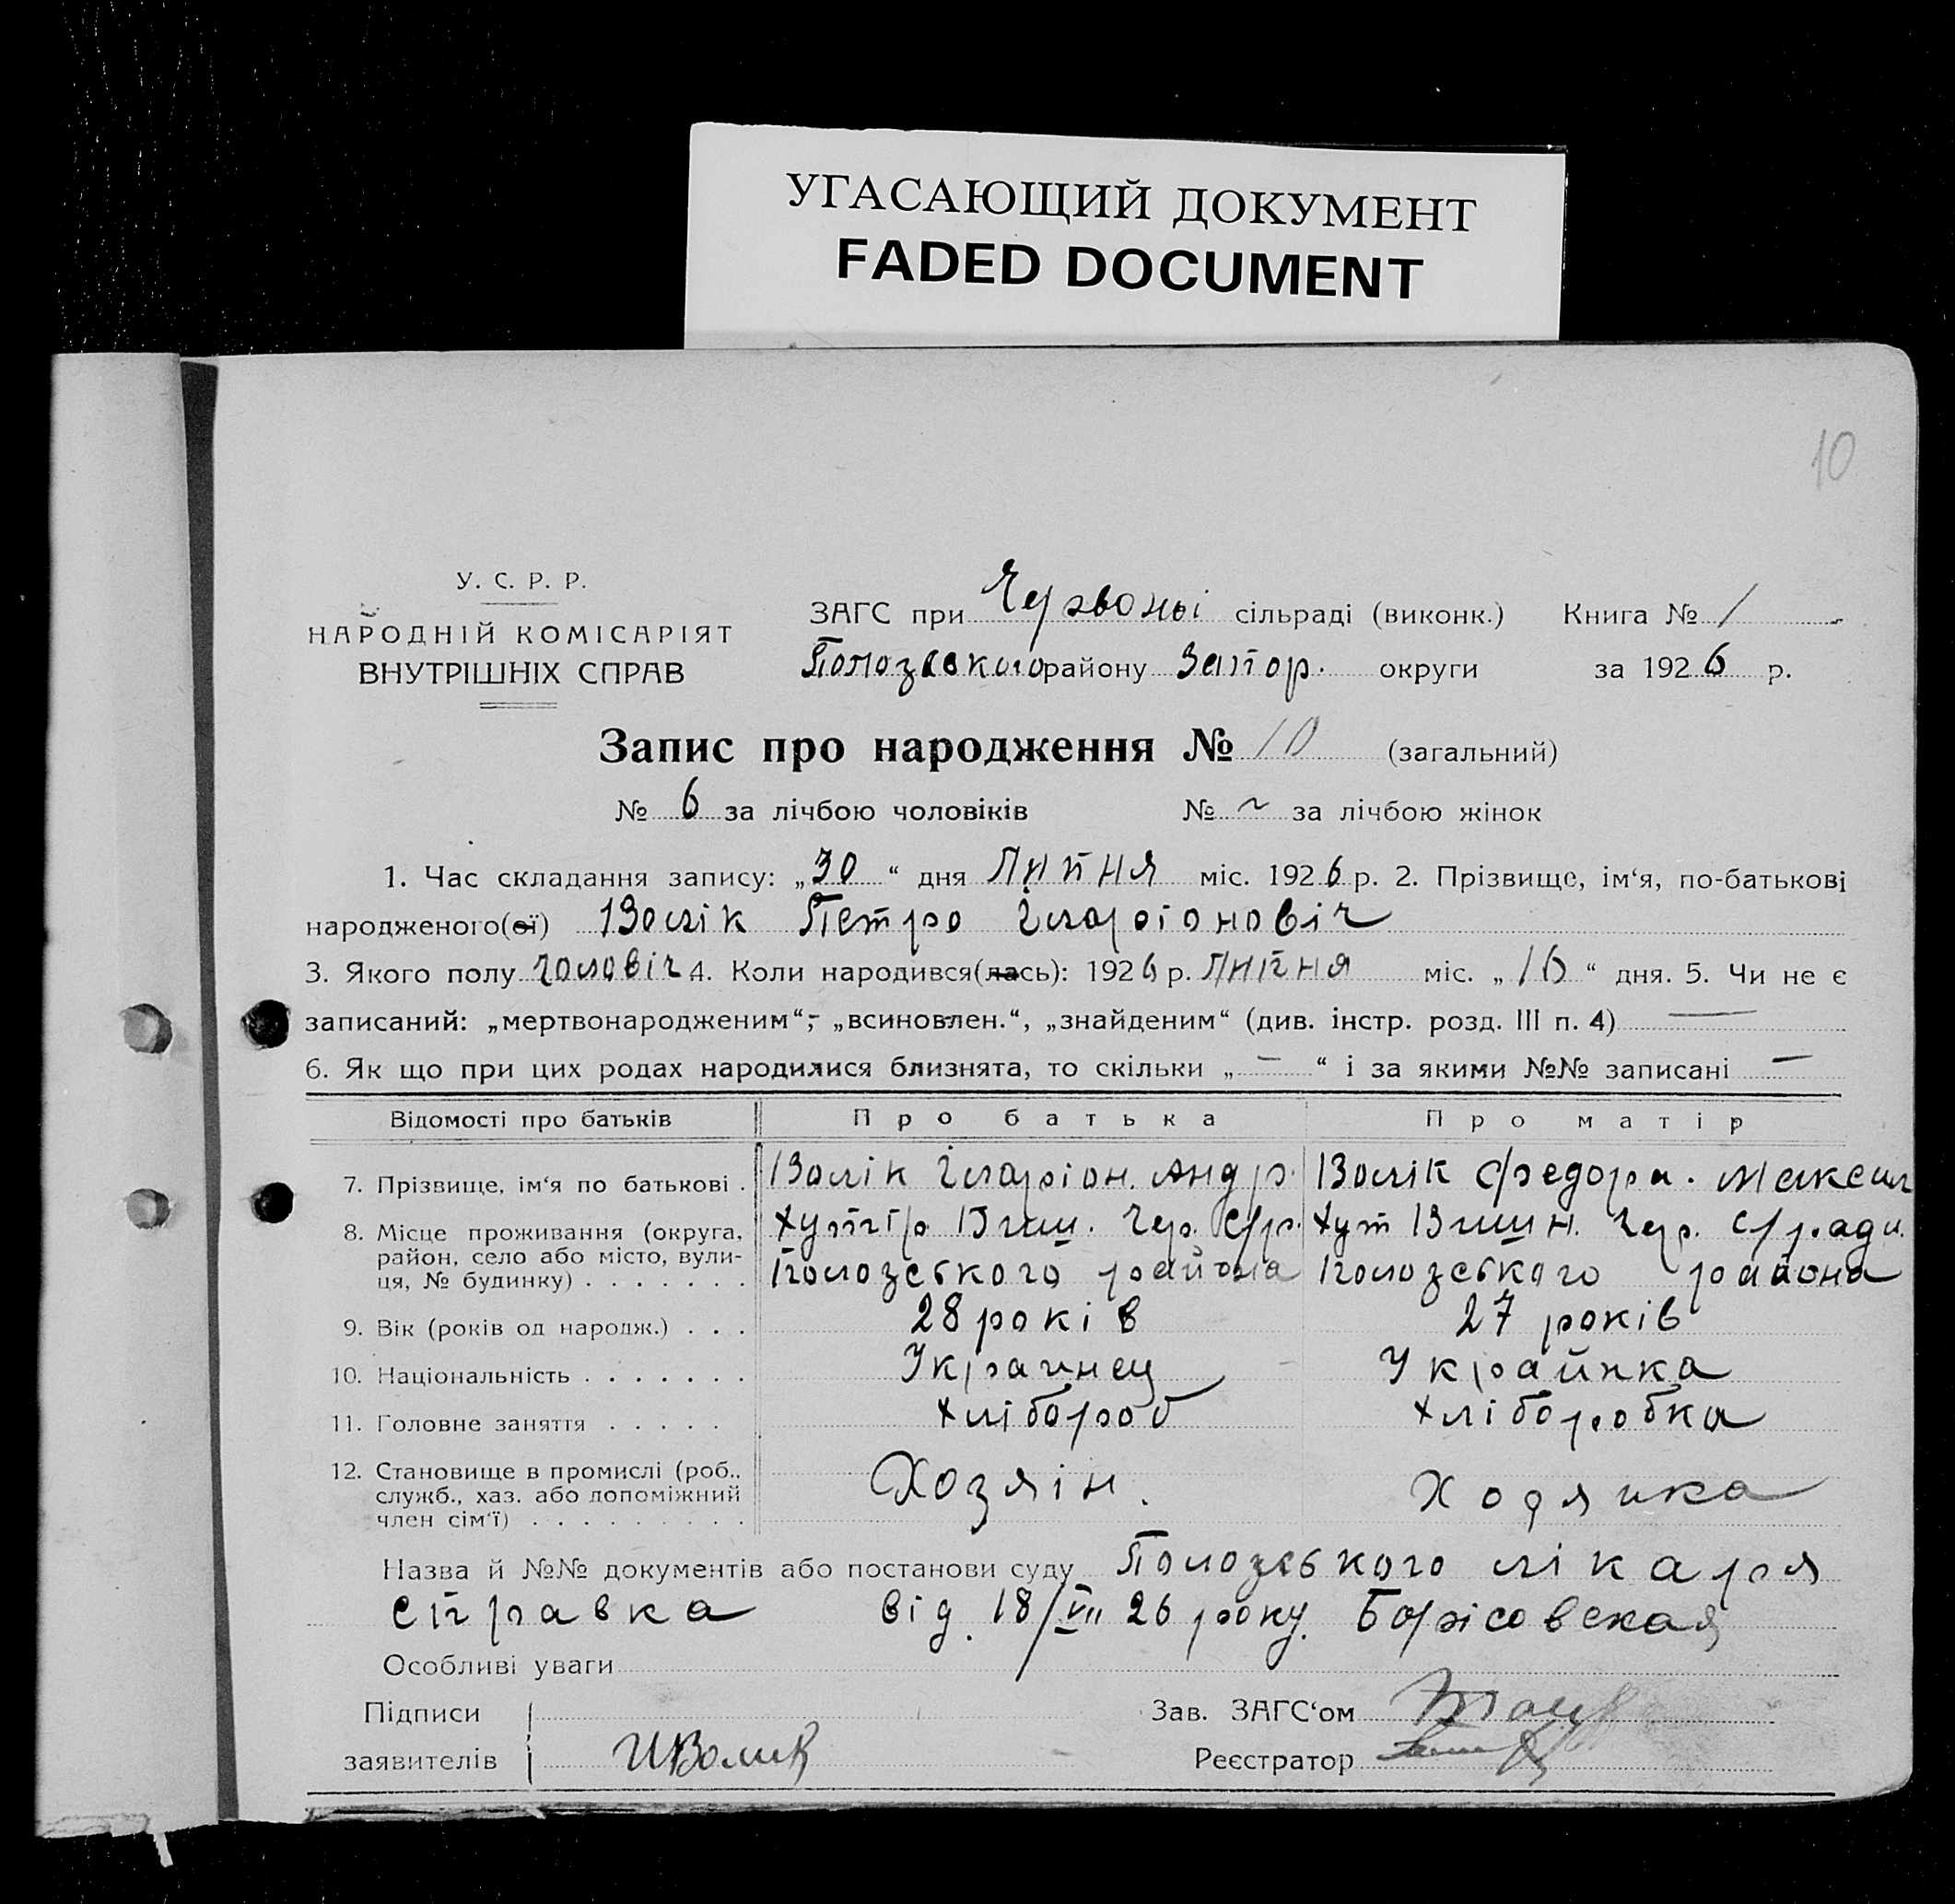 УГАСАЮЩИЙ ДОКУМЕНТ
FADED DOCUMENT
10
У. С. Р. Р.
НАРОДНІЙ КОМІСАРІЯТ
ВНУТРІШНІХ СПРАВ
ЗАГС при Червоній сільраді (виконк.) Книга № 1
Пологівського району Запор. округи за 1926 р.
Запис про народження № 10 (загальний)
№ 6 за лічбою чоловіків № ~ за лічбою жінок
1. Час складання запису: „30“ дня Липня міс. 1926 р. 2. Прізвище, ім‘я, по-батькові
народженого(ої) Волік Петро Іларіоновіч
3. Якого полу чоловіч 4. Коли народився(лась): 1926 р. Липня міс. „16“ дня. 5. Чи не є
записаний: „мертвонародженим“, „всиновлен.“, „знайденим“ (див. інстр. розд. III п. 4) —
6. Як що при цих родах народилися близнята, то скільки „—“ і за якими №№ записані —
Відомості про батьків Про батька Про матір
7. Прізвище, ім‘я по батькові . Волік Іларіон. Андр. Волік Федора. Максим
8. Місце проживання (округа, район, село або місто, вулиця, № будинку) . . . . . . . Хутір Виш. Чер. с/р. Хут Вишн. Чер. с/ради.
района района
9. Вік (років од народж.) . . . 28 років 27 років
10. Національність . . . . . . . Украинец Украйнка
11. Головне заняття . . . . . Хлібороб Хліборобка
12. Становище в промислі (роб., служб., хаз. або допоміжний член сім‘ї) . . . . . . . . . Хозяін. Ходяика
Назва й №№ документів або постанови суду лікаря
справка від 18/VII 26 року. Борісовская
Особливі уваги
Підписи Зав. ЗАГС‘ом
заявителів ИВолик Реєстратор